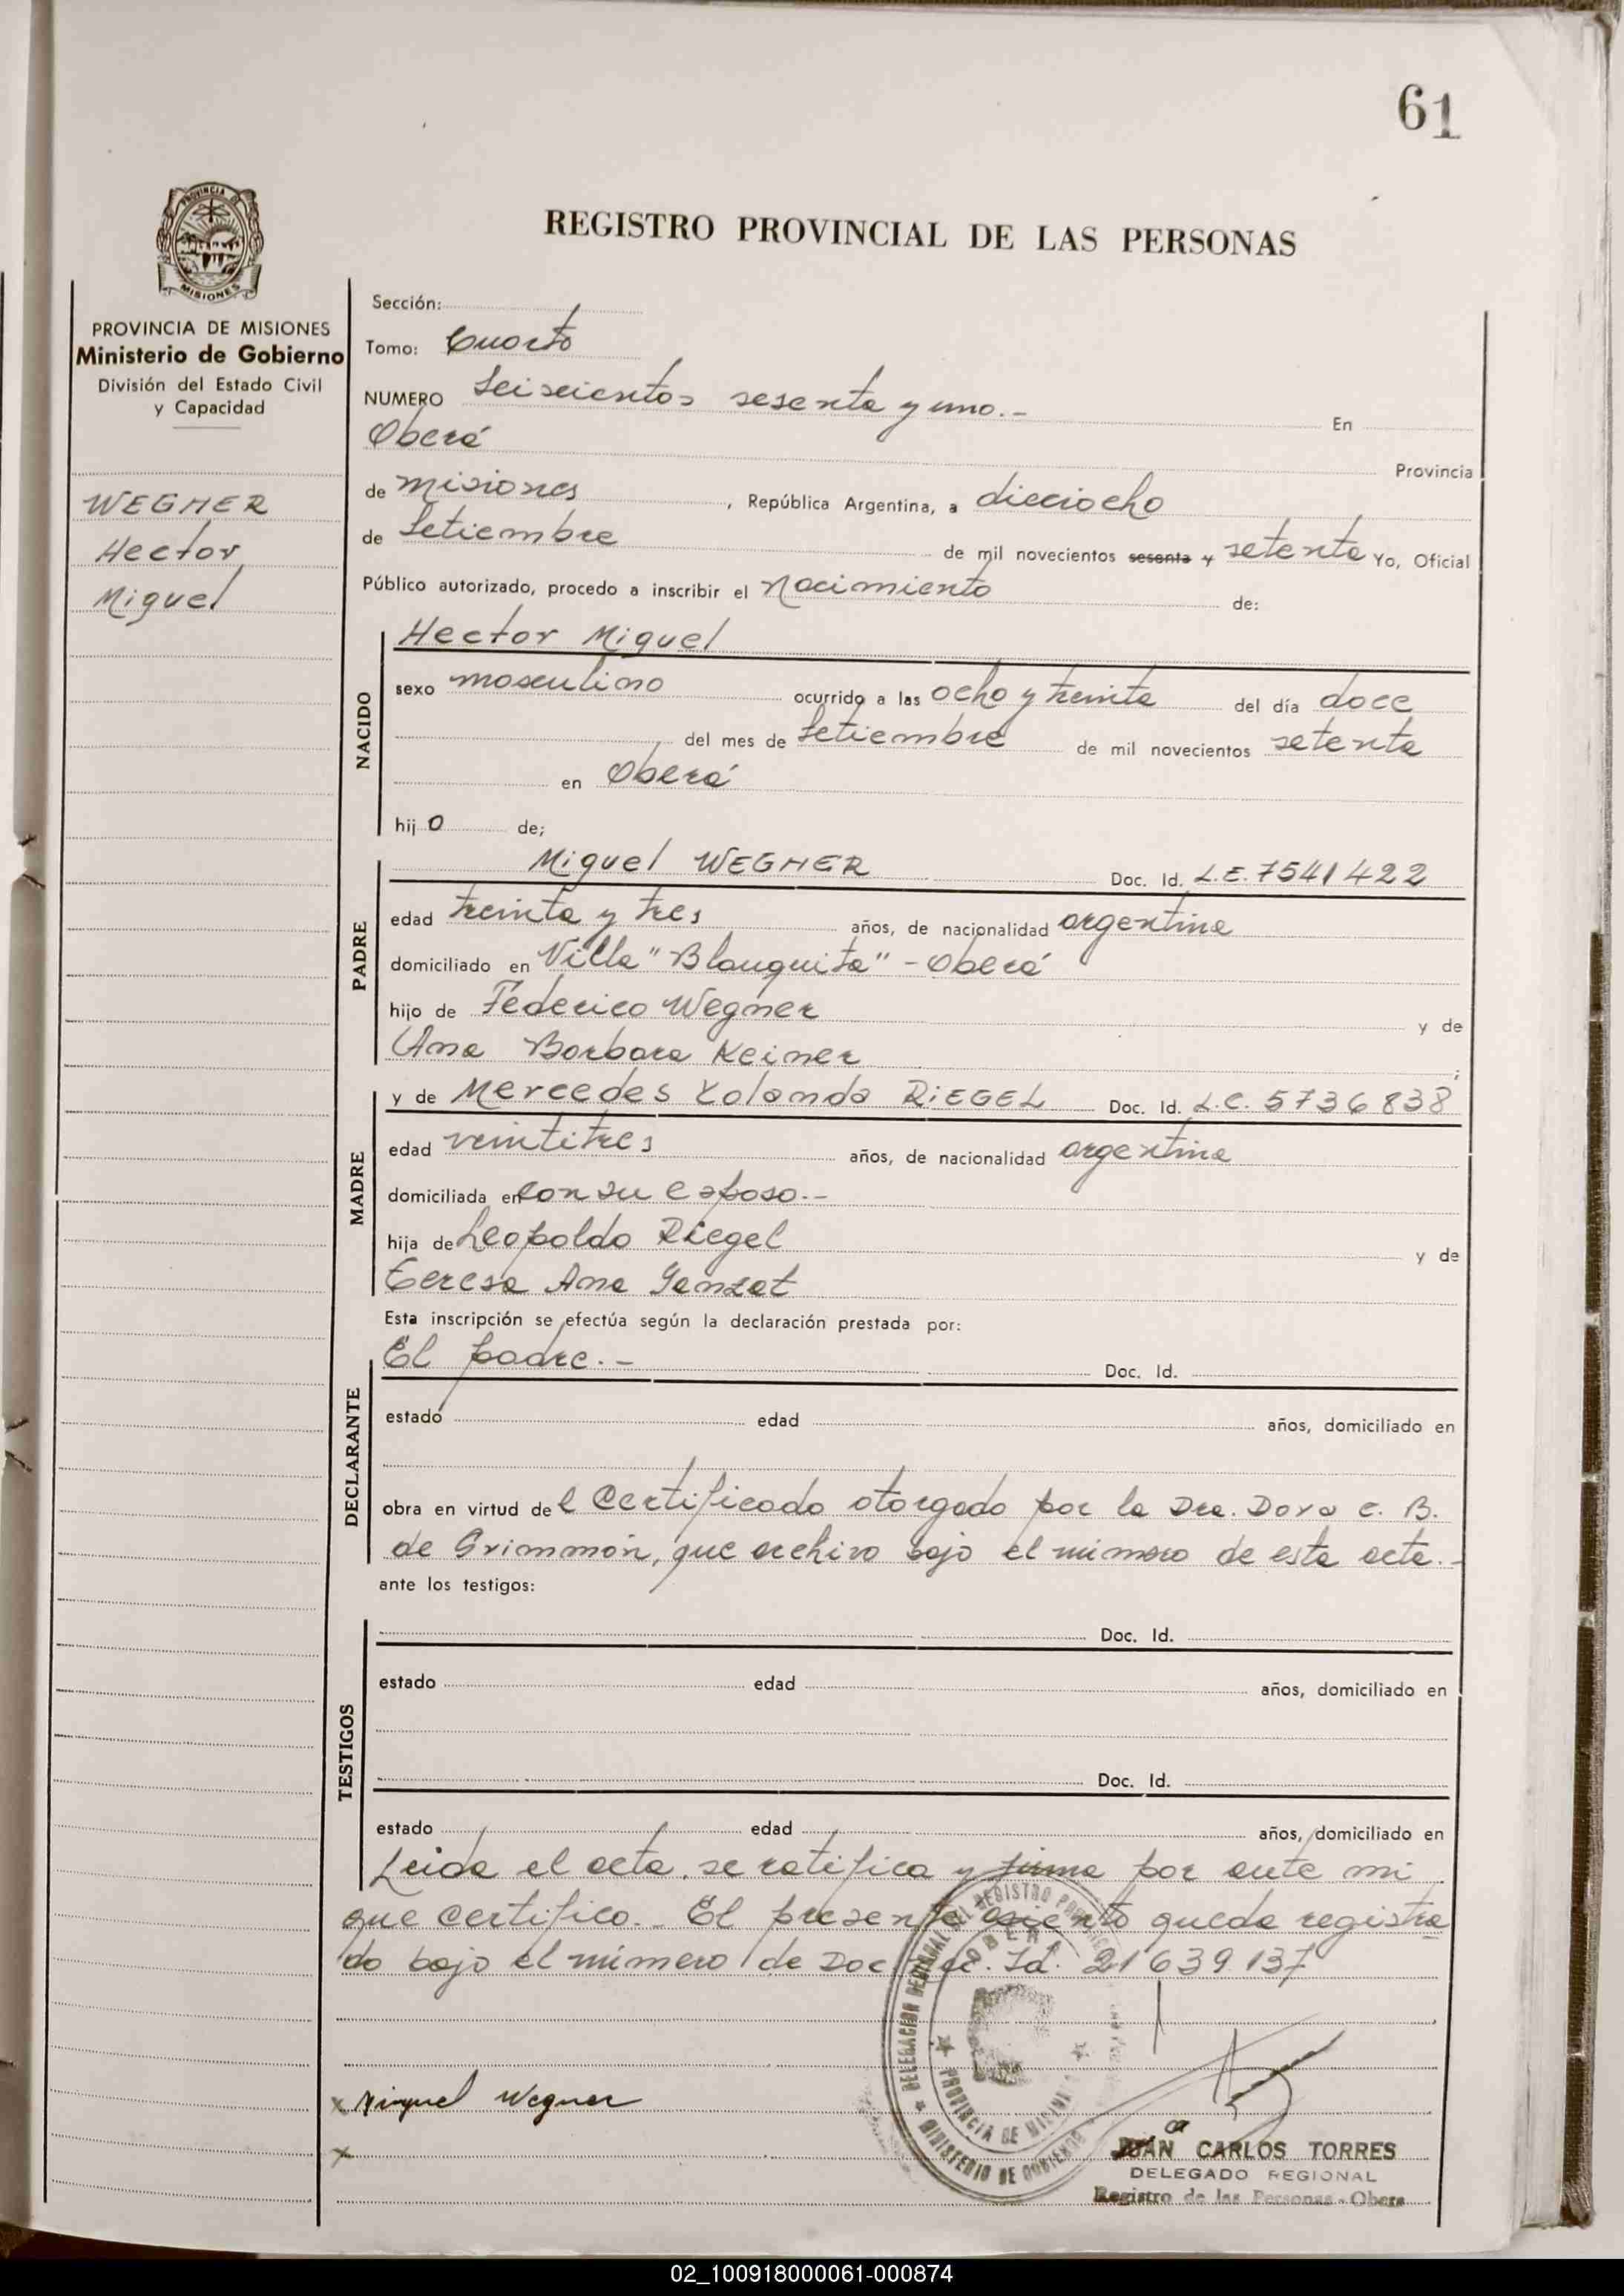 61
REGISTRO PROVINCIAL DE LAS PERSONAS
PROVINCIA
MISIONES
PROVINCIA DE MISIONES
Ministerio de Gobierno
División del Estado Civil
y Capacidad
WEGNER
Hector
Miguel
Sección:
Tomo: Cuarto
NUMERO Seiscientos sesenta y uno.- En
Oberá Provincia
de Misiones, República Argentina, a dieciocho
de Setiembre de mil novecientos sesenta y setenta Yo, Oficial
Público autorizado, procedo a inscribir el Nacimiento de:
NACIDO
Hector Miguel
sexo masculino ocurrido a las ocho y treinta del día doce
del mes de Setiembre de mil novecientos setenta
en Oberá
hijo de;
PADRE
Miguel WEGNER Doc. Id. L.E. 7541422
edad treinta y tres años, de nacionalidad argentina
domiciliado en Villa "Blanquita" - Oberá
hijo de Federico Wegner y de
Ana Barbara Keiner;
MADRE
y de Mercedes Yolanda RiEGEL Doc. Id. L.C. 5736838
edad veintitres años, de nacionalidad argentina
domiciliada en con su esposo.-
hija de Leopoldo Riegel y de
Teresa Ana
Esta inscripción se efectúa según la declaración prestada por:
DECLARANTE
El padre.- Doc. Id.
estado edad años, domiciliado en
obra en virtud del Certificado otorgado por la Dra. Dora C. B.
de Grimmon, que archivo bajo el número de esta acta.-
ante los testigos:
TESTIGOS
Doc. Id.
estado edad años, domiciliado en
Doc. Id.
estado edad años, domiciliado en
Leida el acta, se ratifica y firma por ante mi
que certifico.- El presente asiento queda registra
do bajo el número de Doc. Nac. Id. 21639137
DELEGACION REGIONAL DEL REGISTRO
OBERA
PROVINCIA DE MISIONES
MINISTERIO DE GOBIERNO
x Miguel Wegner
x
JUAN CARLOS TORRES
DELEGADO REGIONAL
Registro de las Personas - Obera
02_100918000061-000874